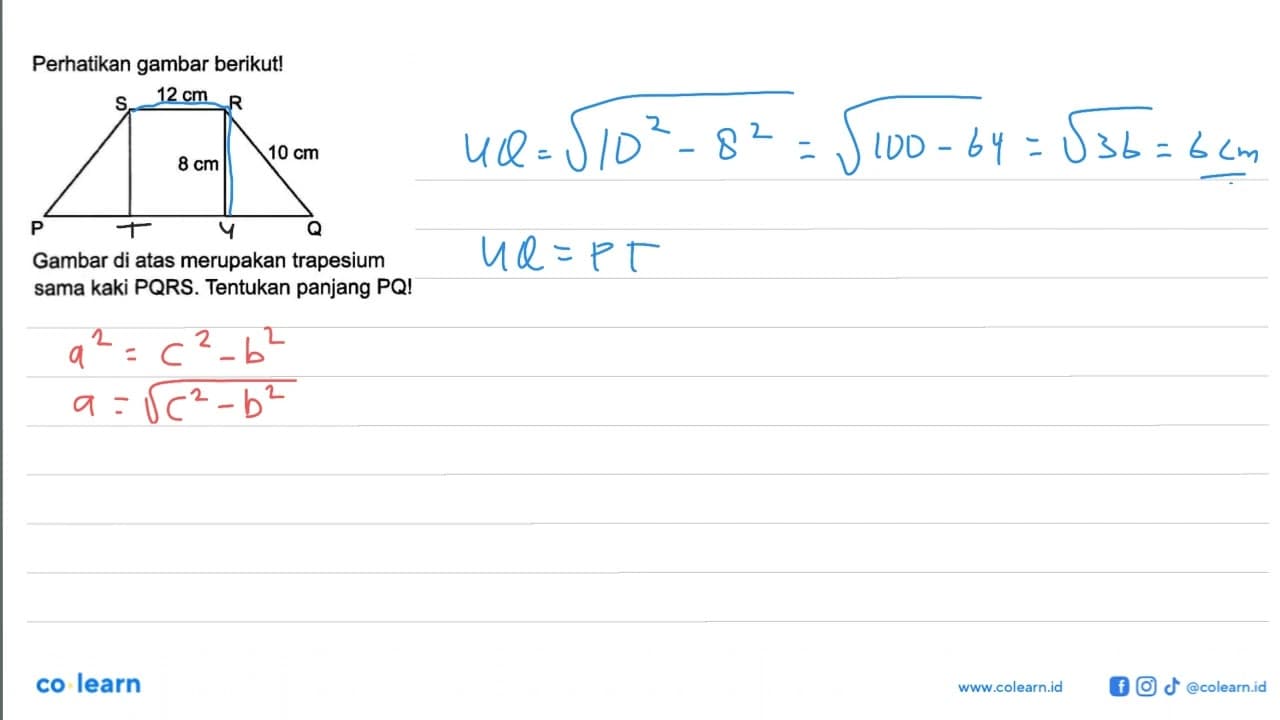 Perhatikan gambar berikut!
S 12 cm R
8 cm 10 cm
P T U Q
Gambar di atas merupakan trapesium
sama kaki PQRS. Tentukan panjang PQ!
a² = c² - b²
a = √c² - b²
UQ = √10² - 8² = √100 - 64 = √36 = 6 cm
UQ = PT
co learn
www.colearn.id
@colearn.id